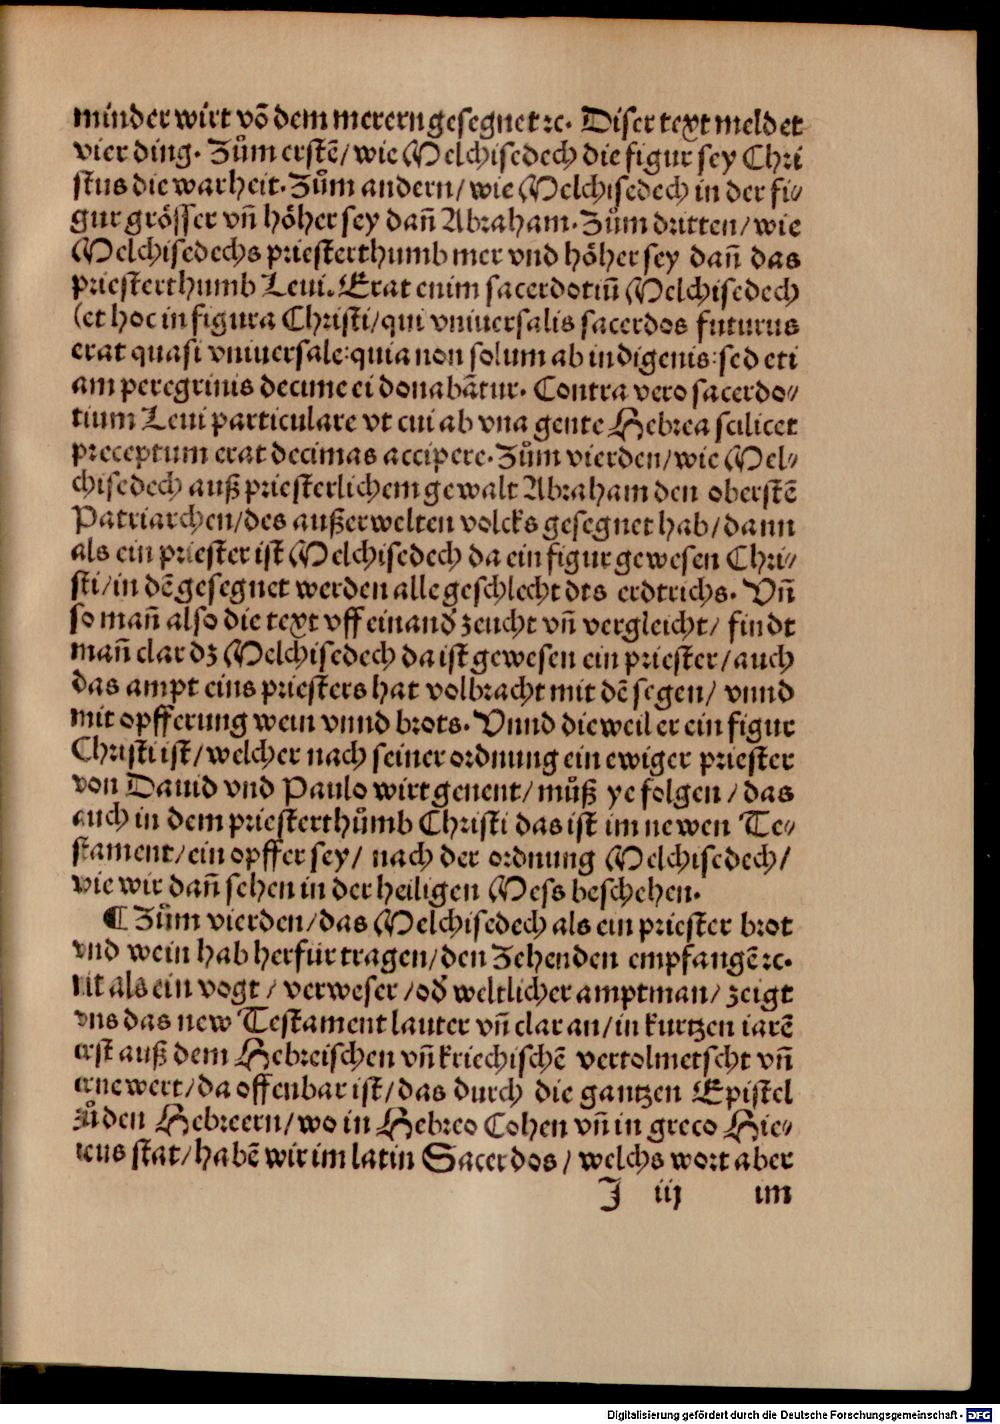 minder wirt võ dem merern gesegnet ⁊c. Diser text meldet
vier ding. Zům erstẽ / wie Melchisedech die figur sey Chri
stus die warheit. Zům andern / wie Melchisedech in der fi⸗
gur grösser vñ höher sey dañ Abraham. Zům dritten / wie
Melchisedechs priesterthumb mer vnd höher sey dañ das
priesterthumb Leui. Erat enim sacerdotiũ Melchisedech
(et hoc in figura Christi / qui vniuersalis sacerdos futurus
erat quasi vniuersale: quia non solum ab indigenis: sed eti
am peregrinis decime ei donabãtur. Contra vero sacerdo⸗
tium Leui particulare vt cui ab vna gente Hebrea scilicet
preceptum erat decimas accipere. Zům vierden / wie Mel⸗
chisedech auß priesterlichem gewalt Abraham den oberstẽ
Patriarchen / des außerwelten volcks gesegnet hab / dann
als ein priester ist Melchisedech da ein figur gewesen Chri⸗
sti / in dẽ gesegnet werden alle geschlecht dts erdtrichs. Vñ
so mañ also die text vff einand̃ zeucht vñ vergleicht / findt
mañ clar dz Melchisedech da ist gewesen ein priester / auch
das ampt eins priesters hat volbracht mit dẽ segen / vnnd
mit opfferung wein vnnd brots. Vnnd dieweil er ein figur
Christi ist / welcher nach seiner ordnung ein ewiger priester
von Dauid vnd Paulo wirt genent / můß ye folgen / das
auch in dem priesterthůmb Christi das ist im newen Te⸗
stament / ein opffer sey / nach der ordnung Melchisedech /
wie wir dañ sehen in der heiligen Mess beschehen.
¶ Zům vierden / das Melchisedech als ein priester brot
vnd wein hab herfür tragen / den Zehenden empfangẽ ⁊c.
nit als ein vogt / verweser / od̃ weltlicher amptman / zeigt
vns das new Testament lauter vñ clar an / in kurtzen iarẽ
erst auß dem Hebreischen vñ kriechischẽ vertolmetscht vñ
ernewert / da offenbar ist / das durch die gantzen Epistel
zůden Hebreern / wo in Hebreo Cohen vñ in greco Hie⸗
reus stat / habẽ wir im latin Sacerdos / welchs wort aber
J iij im
Digitalisierung gefördert durch die Deutsche Forschungsgemeinschaft - DFG